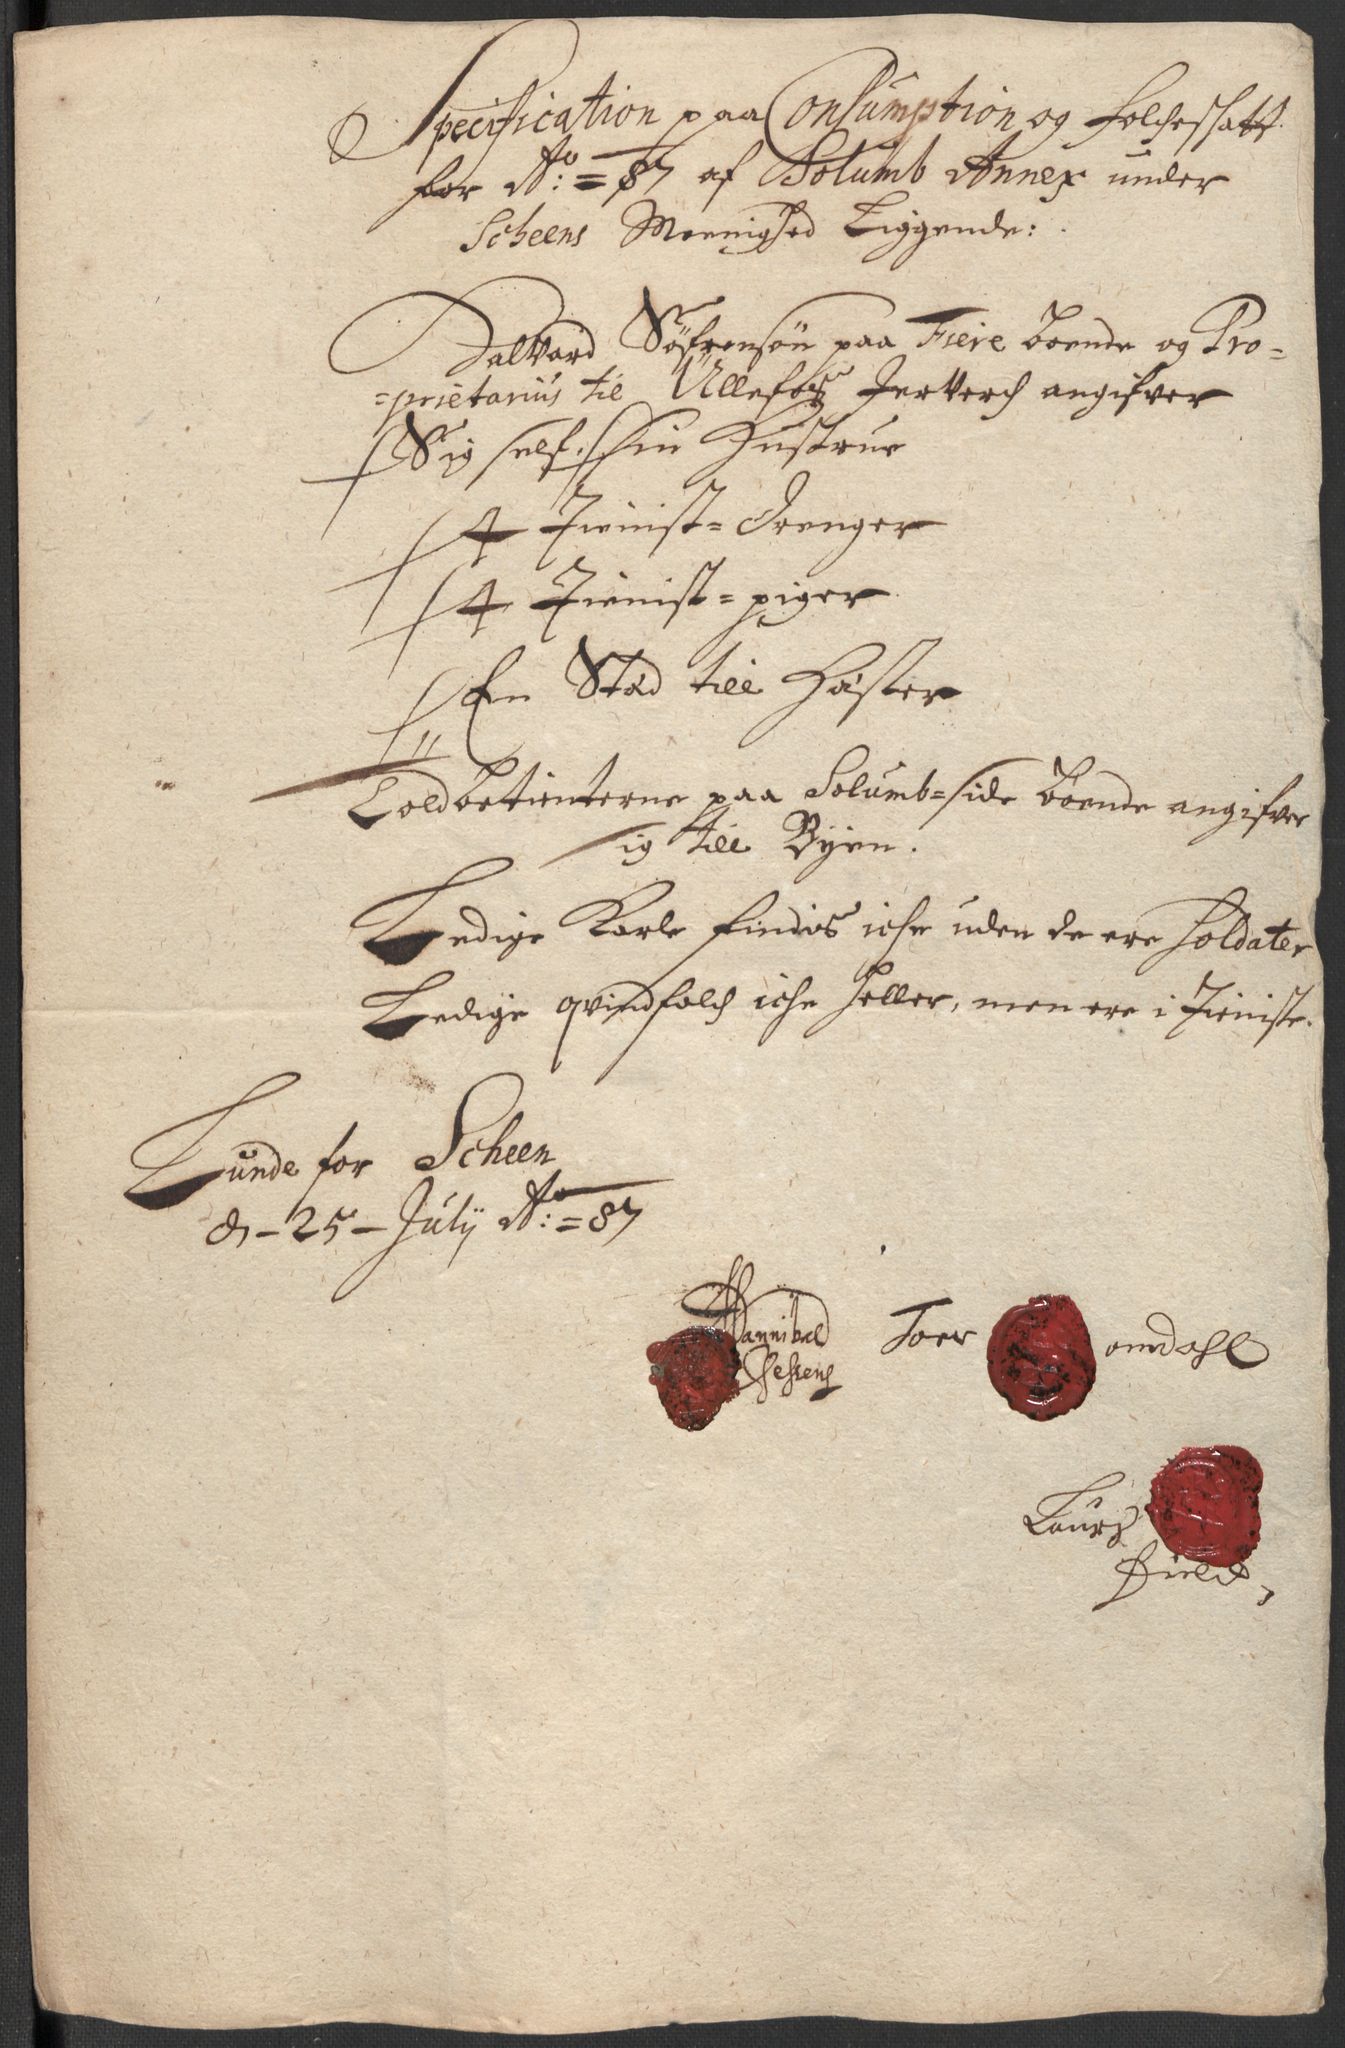 Specification paa Consumption og Folcheskatt
for Ao: = 87 af Solumb Annex under
Scheens Meenighed Liggende:
Halvard Söfrensön paa Fiere boende og Pro=
=prietarius til Ullefos Jerverch angifver
Sig self, Sin Hustrue
4 Tienist= drenger
4 Tienist= piger
En Stad till Häster
Toldbetienterne paa Solumb=side boende angifver
sig till Byen.
Ledige Karle findis iche uden de ere Soldater
Ledige qvindfolch iche heller, men ere i Tieniste.
Lunde for Scheen
d – 25 – Julij Ao: = 87
Hannibal Toer omdahl
Laurs